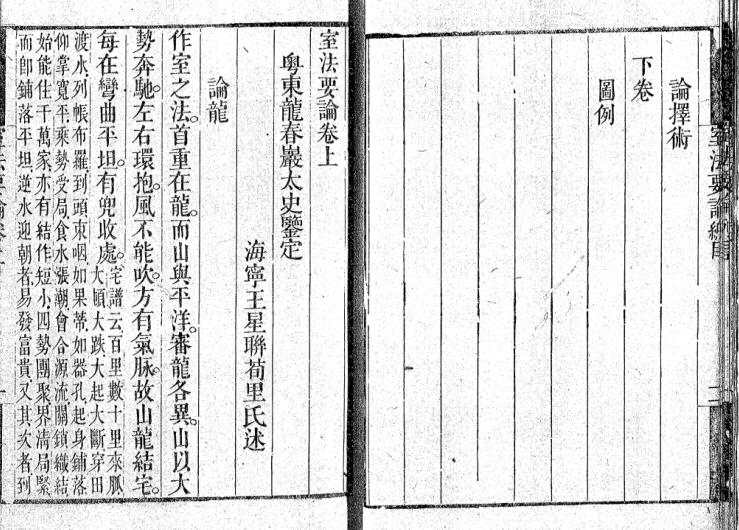 論擇術
下卷
圖例
室法要論總目
二
室法要論卷上
粤東龍春巖太史鑒定
海寧王星聯荀里氏述
論龍
作室之法。首重在龍。而山與平洋。審龍各異。山以大
勢奔馳。左右環抱。風不能吹。方有氣脉。故山龍結宅。
每在彎曲平坦。有兜收處。宅譜云百里數十里來脈
大頓大跌大起大斷穿田
渡水列帳布羅到頭束咽如果蒂如器孔起身鋪落
仰掌寬平乘勢受局食水張潮會合源流關鎖織結
始能住千萬家亦有結作短小四勢團聚界清局緊
而卽鋪落平坦逆水迎朝者易發富貴又其次者到
室法要論卷上
一